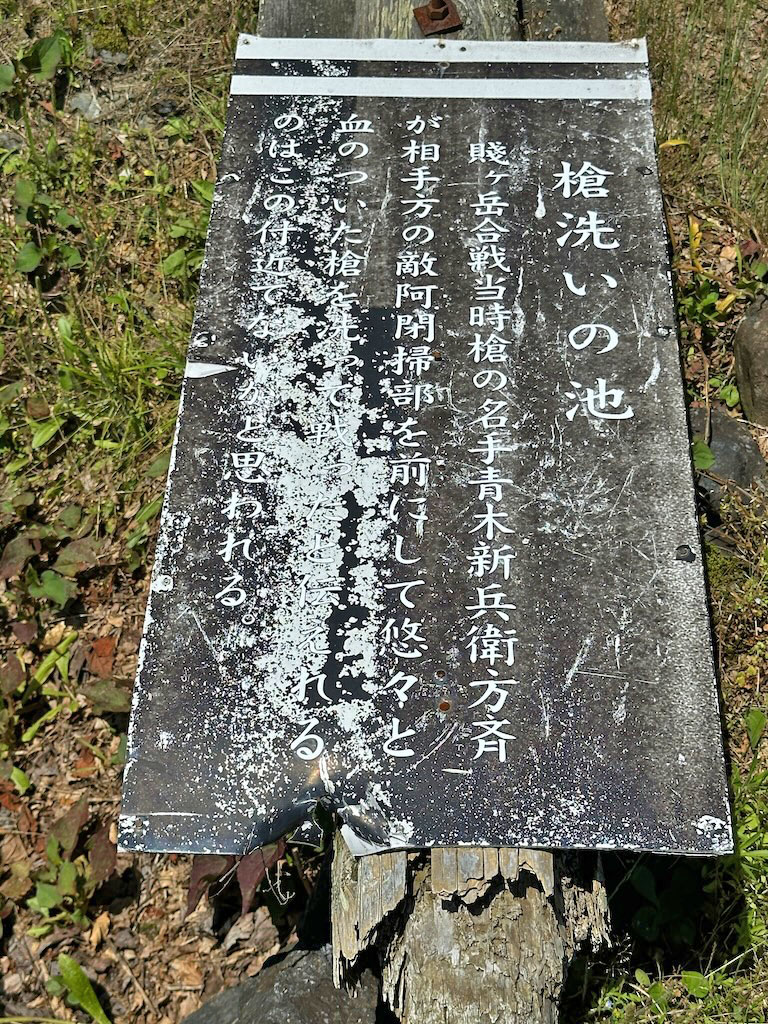 槍洗いの池
賤ヶ岳合戦当時槍の名手青木新兵衛方斉
が相手方の敵阿閉掃部を前にして悠々と
血のついた槍を洗って戦ったと伝えれる
のはこの付近でないかと思われる。